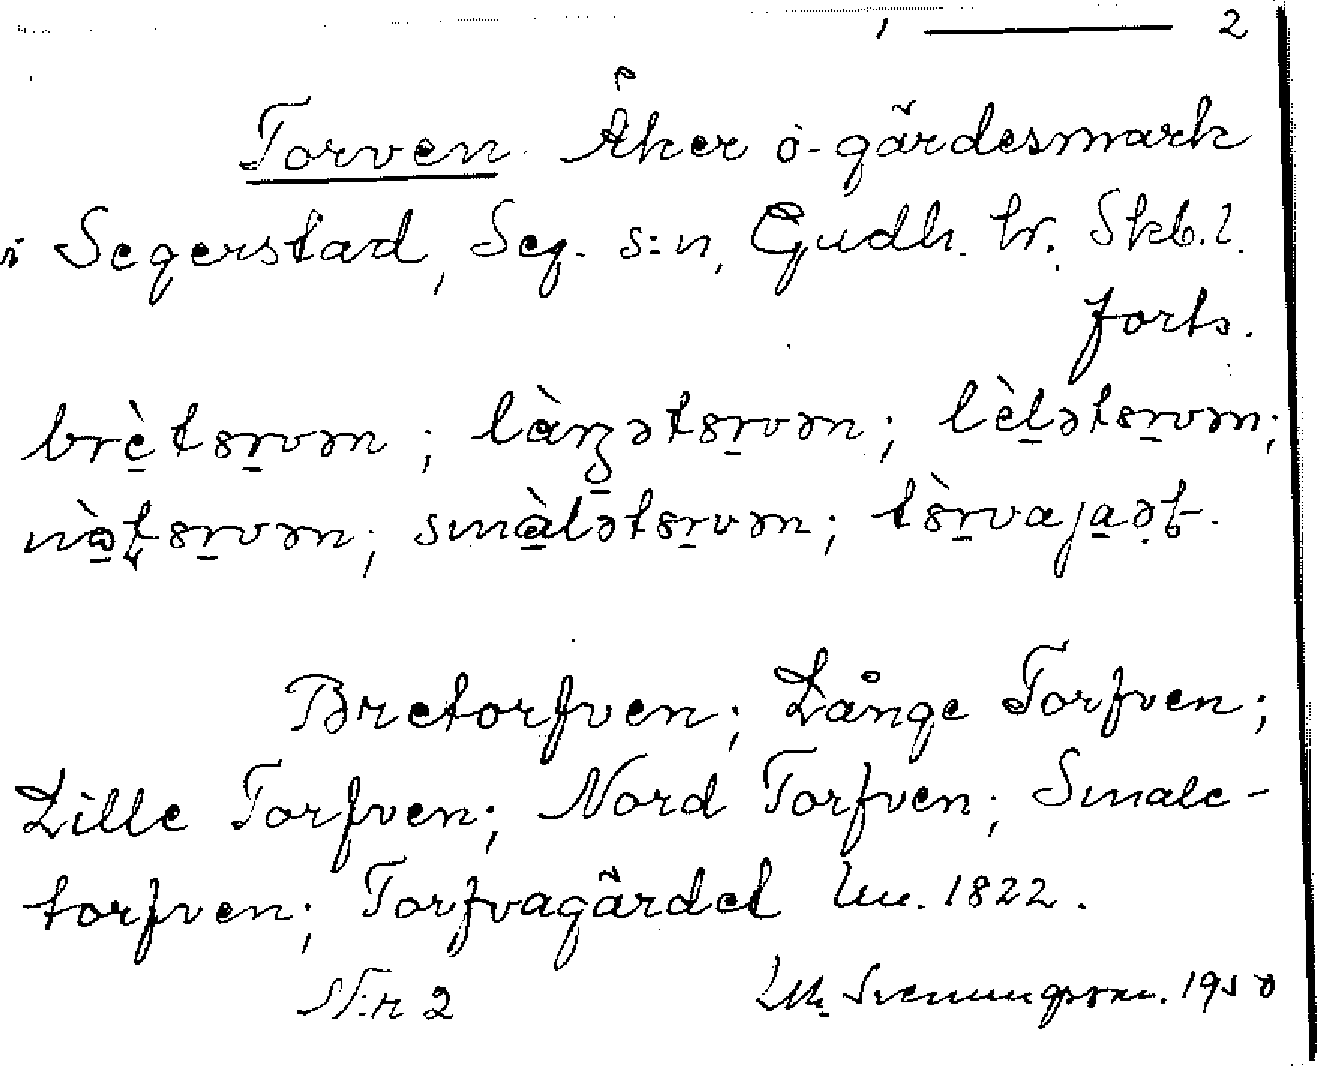 2
Torven. Åker o. gärdesmark
i Segerstad, Seg. s:n, Gudh. hr. Skb. l.
forts.
brè̠tsr̠vən; làŋ̠ətsr̠vən; lèl̠ətsr̠vən;
smàl̠ətsr̠vən; tsr̠̀vaja̠əṭ.
Bretorfven; Långe Torfven;
Lille Torfven; Nord Torfven; Smale-
torfven; Torfvagärdet Lm. 1822.
N:r 2 Svenungsson. 1950